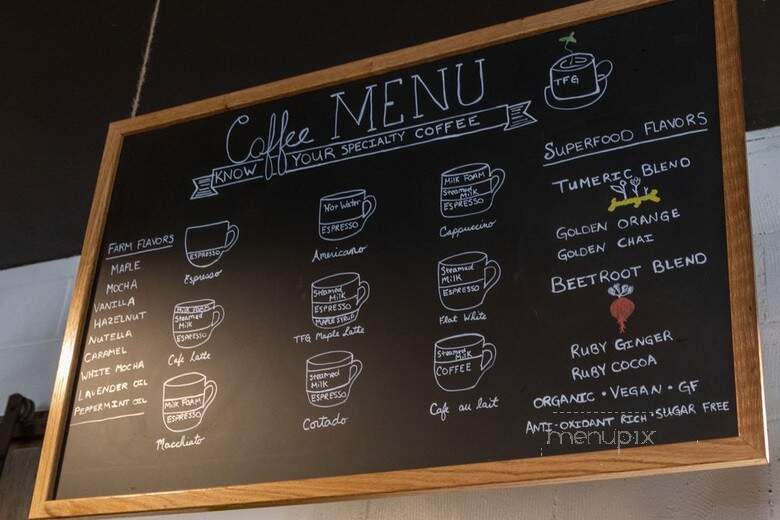 Coffee MENU
KNOW YOUR SPECIALTY COFFEE
TFG
FARM FLAVORS
MAPLE
MOCHA
VANILLA
HAZELNUT
NUTELLA
CARAMEL
WHITE MOCHA
LAVENDER OIL
PEPPERMINT OIL
ESPRESSO
Espresso
MILK FOAM
Steamed
MILK
ESPRESSO
Cafe Latte
MILK FOAM
ESPRESSO
Macchiato
Hot Water
ESPRESSO
Americano
Steamed
Milk
ESPRESSO
MAPLE SYRUP
TFG Maple Latte
Steamed
MILK
ESPRESSO
Cortado
MILK FOAM
Steamed
MILK
ESPRESSO
Cappuccino
Steamed
MILK
ESPRESSO
Flat White
Steamed
MILK
COFFEE
Cafe au lait
SUPERFOOD FLAVORS
TUMERIC BLEND
GOLDEN ORANGE
GOLDEN CHAI
BEETROOT BLEND
RUBY GINGER
RUBY COCOA
ORGANIC • VEGAN • GF
ANTI-OXIDANT RICH • SUGAR FREE
menupix